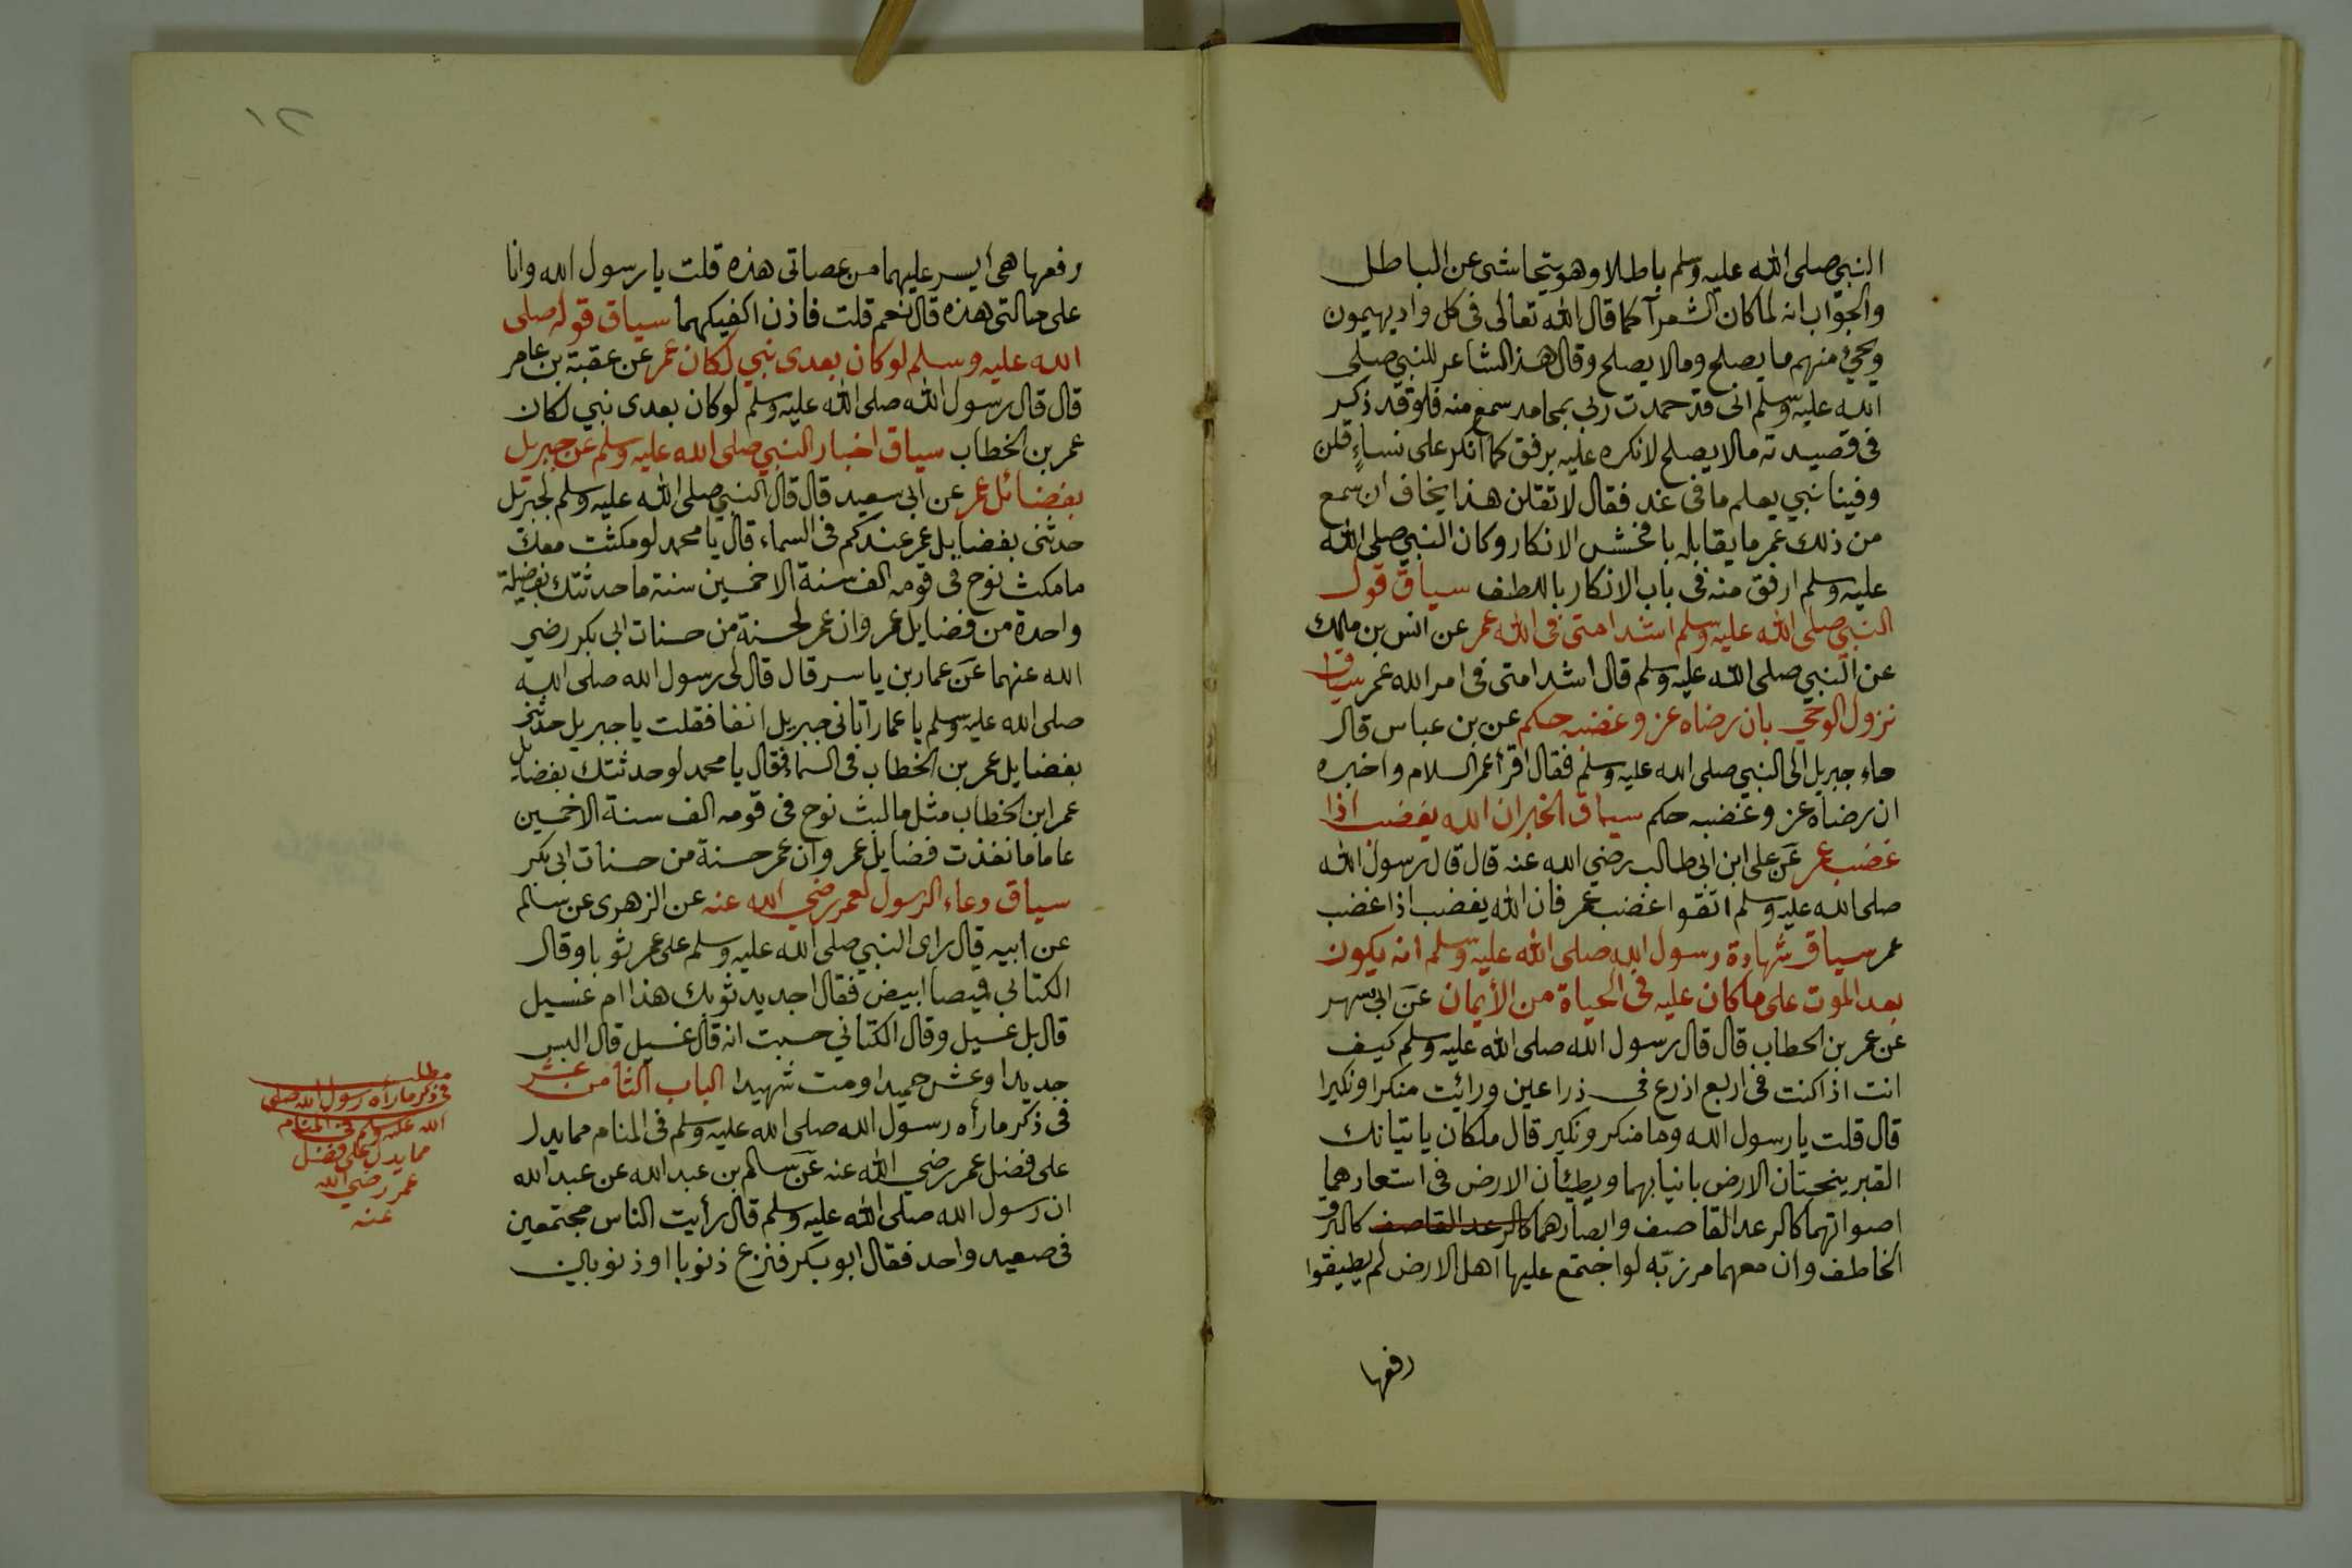 النبي صلى الله عليه وسلم باطلا وهو يتحاشى عن الباطل
والجواب انه لما كان الشعرآ كما قال الله تعالى فى كل واد يهيمون
ويجئ منهم ما يصلح وما لا يصلح وقال هذا الشاعر للنبي صلى
الله عليه وسلم انى قد حمدت ربى بمحامد سمع منه فلو قد ذكر
فى قصيدته مالا يصلح لانكره عليه برفق كما انكر على نساءٍ قلن
وفينا نبي يعلم ما فى غد فقال لا تقلن هذا يخاف ان سمع
من ذلك عمر ما يقابله بافخش الانكار وكان النبي صلى الله
عليه وسلم ارفق منه فى باب الانكار باللطف سياق قول
النبي صلى الله عليه وسلم اشد امتى فى الله عمر عن انس بن مالك
عن النبي صلى الله عليه وسلم قال اشد امتى فى امر الله عمر سياق
نزول الوحي بان رضاه عز وغضبه حكم عن بن عباس قال
جاء جبريل الى النبي صلى الله عليه وسلم فقال اقرأ عمر السلام واخبره
ان رضاه عز وغضبه حكم سياق الخبر ان الله يغضب اذا
غضب عمر عن على ابن ابى طالب رضي الله عنه قال قال رسول الله
صلى الله عليه وسلم اتقوا غضب عمر فان الله يغضب اذا غضب
عمر سياق شهادة رسول الله صلى الله عليه وسلم انه يكون
بعد الموت على ما كان عليه فى الحياة من الأيمان عن ابى سهر
عن عمر بن الخطاب قال قال رسول الله صلى الله عليه وسلم كيف
انت اذا كنت فى اربع اذرع فى ذراعين ورائت منكرا ونكيرا
قال قلت يا رسول الله وما منكر ونكير قال ملكان ياتيانك
القبر ينحتان الارض بانيابهما ويطئان الارض فى استعارهما
اصواتهما كالرعد القاصف وابصارهما كالرعد القاصف كالبرق
الخاطف وان معهما مرزبّه لو اجتمع عليها اهل الارض لم يطيقوا
رفعها
رفعها هى ايسر عليهما من عصاتى هذه قلت يا رسول الله وانا
على حالتى هذه قال نعم قلت فاذن اكفيكهما سياق قوله صلى
الله عليه وسلم لو كان بعدى نبي لكان عمر عن عقبة بن عامر
قال قال رسول الله صلى الله عليه وسلم لو كان بعدى نبي لكان
عمر بن الخطاب سياق اخبار النبي صلى الله عليه وسلم عن جبريل
بفضائل عمر عن ابى سعيد قال قال النبي صلى الله عليه وسلم لجبريل
حدثنى بفضايل عمر عندكم فى السماء قال يا محمد لو مكثت معك
ما مكث نوح فى قومه الف سنة الا خمسين سنة ما حدثتك بفضيلة
واحدة من فضايل عمر وان عمر لحسنة من حسنات ابى بكر رضي
الله عنهما عن عمار بن ياسر قال قال لى رسول الله صلى الله
صلى الله عليه وسلم يا عمار اتانى جبريل انفا فقلت يا جبريل حدثنى
بفضايل عمر بن الخطاب فى السماء فقال يا محمد لو حدثتك بفضايل
عمر ابن الخطاب مثل ما لبث نوح فى قومه الف سنة الا خمسين
عاما ما نفذت فضايل عمر وان عمر حسنة من حسنات ابى بكر
سياق دعاء الرسول لعمر رضي الله عنه عن الزهرى عن سالم
عن ابيه قال راى النبي صلى الله عليه وسلم على عمر ثوبا وقال
الكتانى قميصا ابيض فقال اجديد ثوبك هذا ام غسيل
قال بل غسيل وقال الكتاني حسبت انه قال غسيل قال البس
جديدا وعش حميدا ومت شهيدا الباب الثامن عشر
فى ذكر ما رأه رسول الله صلى الله عليه وسلم فى المنام مما يدل
على فضل عمر رضي الله عنه عن سالم بن عبد الله عن عبد الله
ان رسول الله صلى الله عليه وسلم قال رأيت الناس مجتمعين
فى صعيد واحد فقال ابو بكر فنزع ذنوبا او ذنوبين
مطلب
فى ذكر ما رأه رسول الله صلى
الله عليه وسلم فى المنام
مما يدل على فضل
عمر رضي الله
عنه